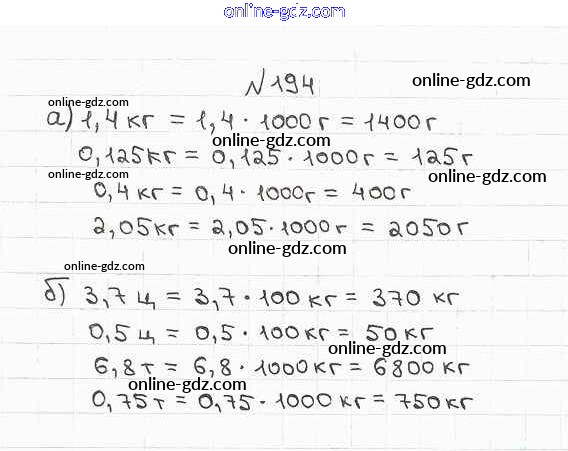 online-gdz.com
№194
online-gdz.com
online-gdz.com
а) 1,4 кг = 1,4 · 1000 г = 1400 г
online-gdz.com
0,125 кг = 0,125 · 1000 г = 125 г
online-gdz.com
online-gdz.com
0,4 кг = 0,4 · 1000 г = 400 г
2,05 кг = 2,05 · 1000 г = 2050 г
online-gdz.com
online-gdz.com
б) 3,7 ц = 3,7 · 100 кг = 370 кг
0,5 ц = 0,5 · 100 кг = 50 кг
online-gdz.com
6,8 т = 6,8 · 1000 кг = 6800 кг
online-gdz.com
0,75 т = 0,75 · 1000 кг = 750 кг
online-gdz.com